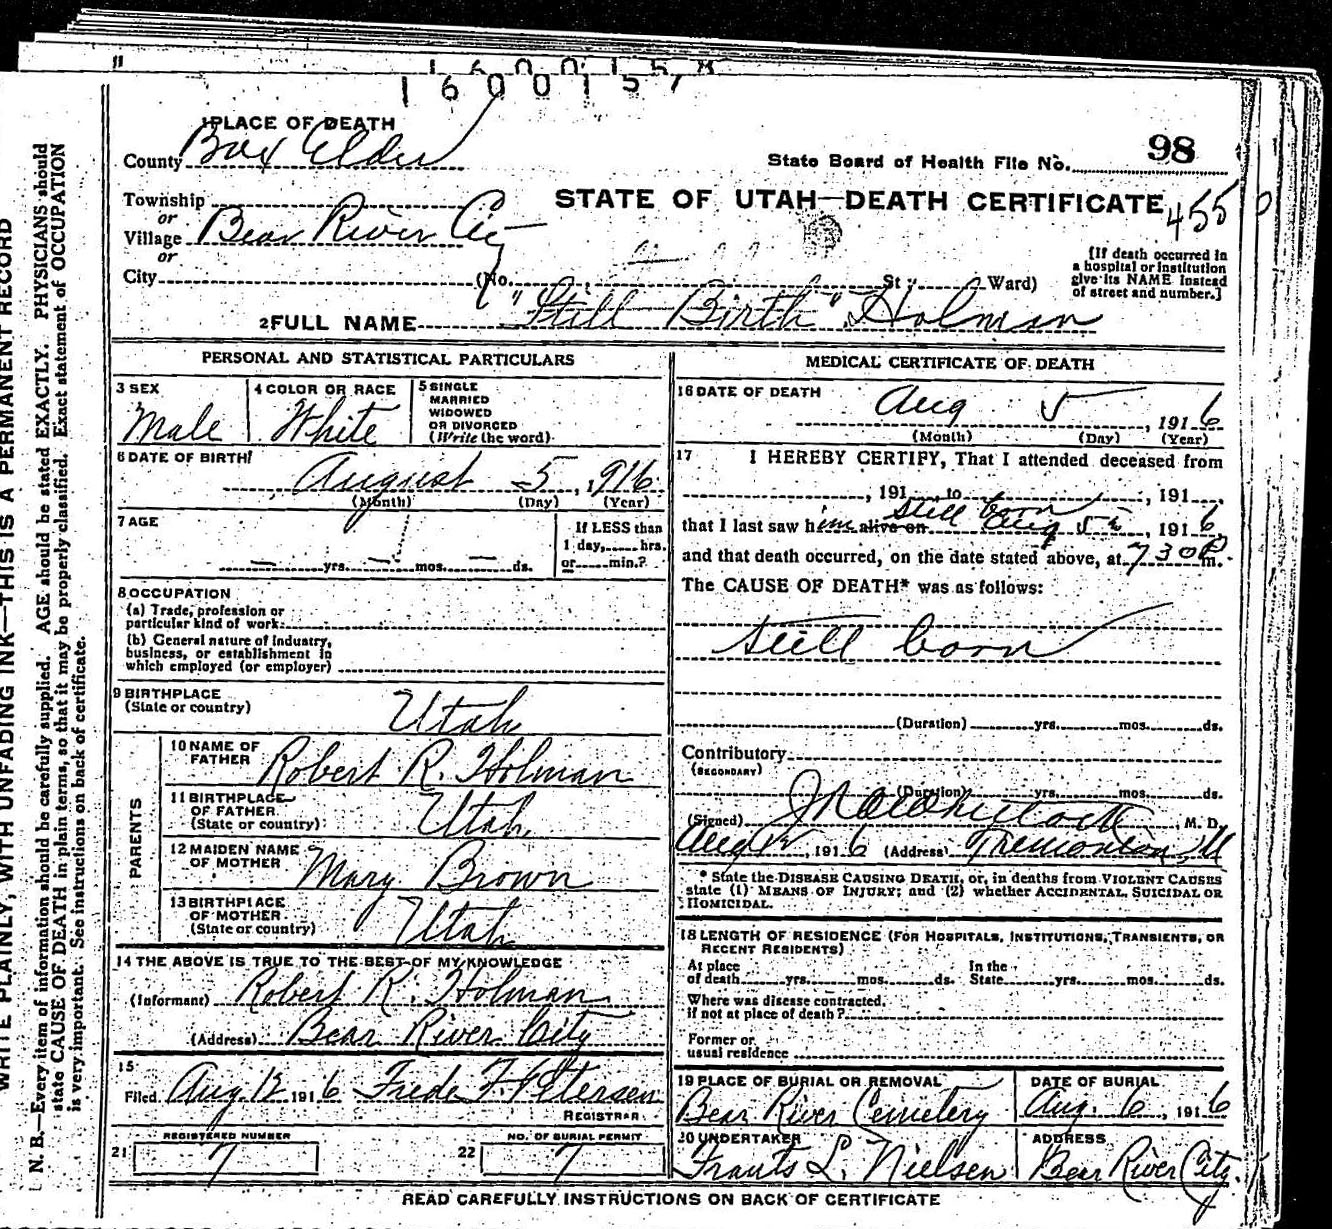 11
1600157
1 PLACE OF DEATH
County Box Elder
State Board of Health File No. 98
Township
or
Village Bear River City
or
City (No. St.; Ward)
STATE OF UTAH—DEATH CERTIFICATE
455
[If death occurred in
a hospital or institution
give its NAME instead
of street and number.]
2 FULL NAME "Still Birth" Holman
PERSONAL AND STATISTICAL PARTICULARS
3 SEX
Male
4 COLOR OR RACE
White
5 SINGLE
MARRIED
WIDOWED
OR DIVORCED
(Write the word)
6 DATE OF BIRTH
August 5, 1916
(Month) (Day) (Year)
7 AGE
— yrs. — mos. — ds.
If LESS than
1 day, hrs.
or min.?
8 OCCUPATION
(a) Trade, profession or
particular kind of work
(b) General nature of industry,
business, or establishment in
which employed (or employer)
9 BIRTHPLACE
(State or country)
Utah
PARENTS
10 NAME OF
FATHER
Robert R. Holman
11 BIRTHPLACE
OF FATHER
(State or country)
Utah
12 MAIDEN NAME
OF MOTHER
Mary Brown
13 BIRTHPLACE
OF MOTHER
(State or country)
Utah
14 THE ABOVE IS TRUE TO THE BEST OF MY KNOWLEDGE
(Informant) Robert R. Holman
(Address) Bear River City
15
Filed Aug 12 1916 Frede F. Petersen
REGISTRAR
21 REGISTERED NUMBER
7
22 NO. OF BURIAL PERMIT
7
MEDICAL CERTIFICATE OF DEATH
16 DATE OF DEATH
Aug 5, 1916
(Month) (Day) (Year)
17 I HEREBY CERTIFY, That I attended deceased from
, 191 , to , 191 ,
still born
that I last saw him alive on Aug 5th, 1916
and that death occurred, on the date stated above, at 730 P m.
The CAUSE OF DEATH* was as follows:
Still born
(Duration) yrs. mos. ds.
Contributory
(SECONDARY)
(Duration) yrs. mos. ds.
(Signed) M. D.
Aug 12, 1916 (Address) Tremonton, U
* State the DISEASE CAUSING DEATH, or, in deaths from VIOLENT CAUSES
state (1) MEANS OF INJURY; and (2) whether ACCIDENTAL, SUICIDAL OR
HOMICIDAL.
18 LENGTH OF RESIDENCE (FOR HOSPITALS, INSTITUTIONS, TRANSIENTS, OR
RECENT RESIDENTS)
At place
of death yrs. mos. ds.
In the
State yrs. mos. ds.
Where was disease contracted.
if not at place of death?
Former or
usual residence
19 PLACE OF BURIAL OR REMOVAL
Bear River Cemetery
DATE OF BURIAL
Aug. 6, 1916
20 UNDERTAKER
Frants L. Nielsen
ADDRESS
Bear River City.
READ CAREFULLY INSTRUCTIONS ON BACK OF CERTIFICATE
WRITE PLAINLY, WITH UNFADING INK—THIS IS A PERMANENT RECORD
N. B.—Every item of information should be carefully supplied. AGE should be stated EXACTLY. PHYSICIANS should
state CAUSE OF DEATH in plain terms, so that it may be properly classified. Exact statement of OCCUPATION
is very important. See instructions on back of certificate.